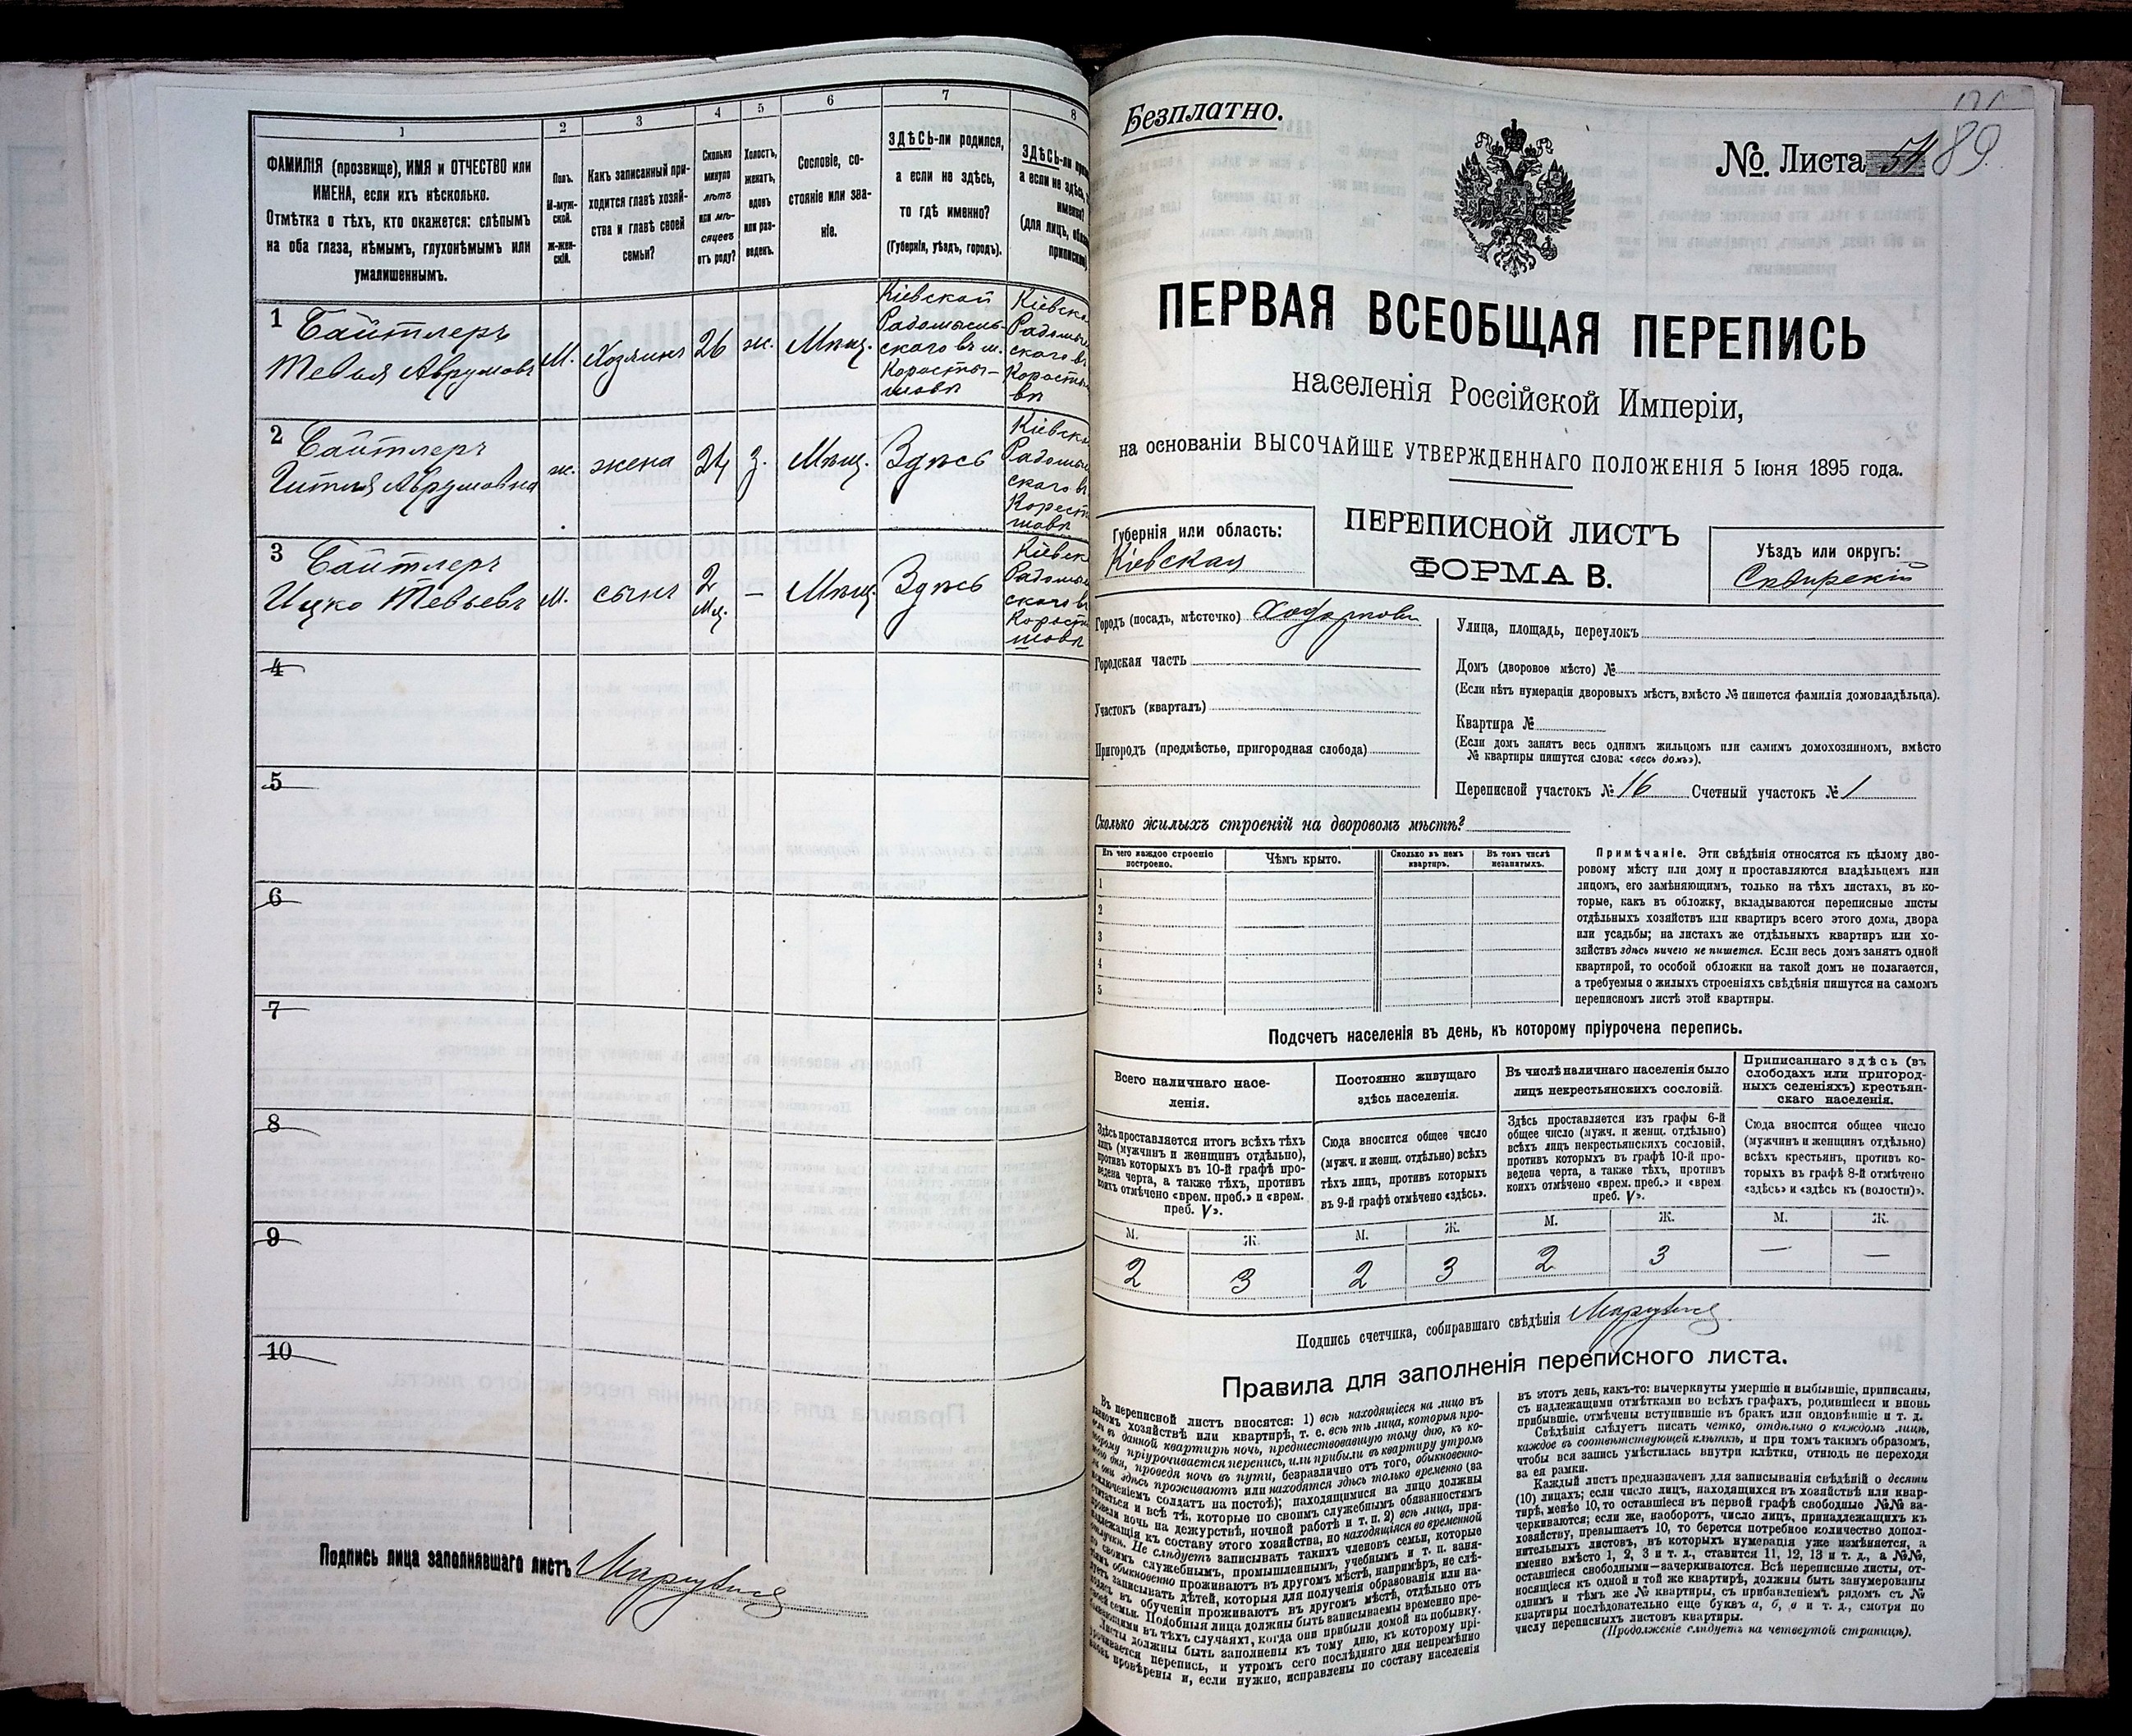 1
2
3
4
5
6
7
8
ФАМИЛІЯ (прозвище), ИМЯ и ОТЧЕСТВО или
ИМЕНА, если ихъ нѣсколько.
Отмѣтка о тѣхъ, кто окажется: слѣпымъ
на оба глаза, нѣмымъ, глухонѣмымъ или
умалишеннымъ.
Полъ.
М-муж-
ской.
ж-жен-
скій.
Какъ записанный при-
ходится главѣ хозяй-
ства и главѣ своей
семьи?
Сколько
минуло
лѣтъ
или мѣ-
сяцевъ
отъ роду?
Холостъ,
женатъ,
вдовъ
или раз-
веденъ.
Сословіе, со-
стояніе или зва-
ніе.
ЗДѢСЬ-ли родился,
а если не здѣсь,
то гдѣ именно?
(Губернія, уѣздъ, городъ).
ЗДѢСЬ-ли
а если не здѣсь,
именно?
(для лицъ,
1 Байтлеръ
Тевья Аврумовъ
М.
Хозяинъ
26
ж.
Мѣщ.
Кіевской
Радомысль-
скаго въ м.
Коросты-
шовѣ
2 Байтлеръ
Гитля Аврумовна
ж.
жена
24
з.
Мѣщ.
Здѣсь
3 Байтлеръ
Ицко Тевьевъ
М.
сынъ
2
Мц.
—
Мѣщ.
Здѣсь
4
5
6
7
8
9
10
Подпись лица заполнявшаго листъ
Безплатно.
№. Листа 54 89
ПЕРВАЯ ВСЕОБЩАЯ ПЕРЕПИСЬ
населенія Россійской Имперіи,
на основаніи ВЫСОЧАЙШЕ УТВЕРЖДЕННАГО ПОЛОЖЕНІЯ 5 Іюня 1895 года.
Губернія или область:
Кіевская
ПЕРЕПИСНОЙ ЛИСТЪ
ФОРМА В.
Уѣздъ или округъ:
Сквирскій
Городъ (посадъ, мѣстечко) Ходорковъ
Городская часть
Участокъ (кварталъ)
Пригородъ (предмѣстье, пригородная слобода)
Улица, площадь, переулокъ
Домъ (дворовое мѣсто) №
(Если нѣтъ нумераціи дворовыхъ мѣстъ, вмѣсто № пишется фамилія домовладѣльца).
Квартира №
(Если домъ занятъ весь однимъ жильцомъ или самимъ домохозяиномъ, вмѣсто
№ квартиры пишутся слова: «весь домъ»).
Переписной участокъ № 16 Счетный участокъ № 1
Сколько жилыхъ строеній на дворовомъ мѣстѣ?
Изъ чего каждое строеніе
построено.
Чѣмъ крыто.
Сколько въ немъ
квартиръ.
Въ томъ числѣ
незанятыхъ.
1
2
3
4
5
Примѣчаніе. Эти свѣдѣнія относятся къ цѣлому дво-
ровому мѣсту или дому и проставляются владѣльцемъ или
лицомъ, его замѣняющимъ, только на тѣхъ листахъ, въ ко-
торые, какъ въ обложку, вкладываются переписные листы
отдѣльныхъ хозяйствъ или квартиръ всего этого дома, двора
или усадьбы; на листахъ же отдѣльныхъ квартиръ или хо-
зяйствъ здѣсь ничего не пишется. Если весь домъ занятъ одной
квартирой, то особой обложки на такой домъ не полагается,
а требуемыя о жилыхъ строеніяхъ свѣдѣнія пишутся на самомъ
переписномъ листѣ этой квартиры.
Подсчетъ населенія въ день, къ которому пріурочена перепись.
Всего наличнаго насе-
ленія.
Постоянно живущаго
здѣсь населенія.
Въ числѣ наличнаго населенія было
лицъ некрестьянскихъ сословій.
Приписаннаго здѣсь (въ
слободахъ или пригород-
ныхъ селеніяхъ) крестьян-
скаго населенія.
Здѣсь проставляется итогъ всѣхъ тѣхъ
лицъ (мужчинъ и женщинъ отдѣльно),
противъ которыхъ въ 10-й графѣ про-
ведена черта, а также тѣхъ, противъ
коихъ отмѣчено «врем. преб.» и «врем.
преб. V».
Сюда вносится общее число
(мужч. и женщ. отдѣльно) всѣхъ
тѣхъ лицъ, противъ которыхъ
въ 9-й графѣ отмѣчено «здѣсь».
Здѣсь проставляется изъ графы 6-й
общее число (мужч. и женщ. отдѣльно)
всѣхъ лицъ некрестьянскихъ сословій,
противъ которыхъ въ графѣ 10-й про-
ведена черта, а также тѣхъ, противъ
коихъ отмѣчено «врем. преб.» и «врем
преб. V».
Сюда вносится общее число
(мужчинъ и женщинъ отдѣльно)
всѣхъ крестьянъ, противъ ко-
торыхъ въ графѣ 8-й отмѣчено
«здѣсь» и «здѣсь къ (волости)».
М. Ж. М. Ж. М. Ж. М. Ж.
2 3 2 3 2 3 — —
Подпись счетчика, собиравшаго свѣдѣнія
Правила для заполненія переписного листа.
Въ переписной листъ вносятся: 1) всѣ находящіеся на лицо въ
данномъ хозяйствѣ или квартирѣ, т. е. всѣ тѣ лица, которыя про-
вели въ данной квартирѣ ночь, предшествовавшую тому дню, къ ко-
торому пріурочивается перепись, или прибыли въ квартиру утромъ
этого дня, проведя ночь въ пути, безразлично отъ того, обыкновенно-
ли они здѣсь проживаютъ или находятся здѣсь только временно (за
исключеніемъ солдатъ на постоѣ); находящимися на лицо должны
считаться и всѣ тѣ, которые по своимъ служебнымъ обязанностямъ
провели ночь на дежурствѣ, ночной работѣ и т. п. 2) всѣ лица, при-
надлежащія къ составу этого хозяйства, но находящіяся во временной
отлучкѣ. Не слѣдуетъ записывать такихъ членовъ семьи, которые
по своимъ служебнымъ, промышленнымъ, учебнымъ и т. п. заня-
тіямъ обыкновенно проживаютъ въ другомъ мѣстѣ, напримѣръ, не слѣ-
дуетъ записывать дѣтей, которыя для полученія образованія или на-
ходясь въ обученіи проживаютъ въ другомъ мѣстѣ, отдѣльно отъ
своей семьи. Подобныя лица должны быть записываемы временно пре-
бывающими въ тѣхъ случаяхъ, когда они прибыли домой на побывку.
Листы должны быть заполнены къ тому дню, къ которому прі-
урочивается перепись, и утромъ сего послѣдняго дня непремѣнно
вновь провѣрены и, если нужно, исправлены по составу населенія
въ этотъ день, какъ-то: вычеркнуты умершіе и выбывшіе, приписаны,
съ надлежащими отмѣтками во всѣхъ графахъ, родившіеся и вновь
прибывшіе, отмѣчены вступившіе въ бракъ или овдовѣвшіе и т. д.
Свѣдѣнія слѣдуетъ писать четко, отдѣльно о каждомъ лицѣ,
каждое въ соотвѣтствующей клѣткѣ, и при томъ такимъ образомъ,
чтобы вся запись умѣстилась внутри клѣтки, отнюдь не переходя
за ея рамки.
Каждый листъ предназначенъ для записыванія свѣдѣній о десяти
(10) лицахъ; если число лицъ, находящихся въ хозяйствѣ или квар-
тирѣ, менѣе 10, то оставшіеся въ первой графѣ свободные №№ за-
черкиваются; если же, наоборотъ, число лицъ, принадлежащихъ къ
хозяйству, превышаетъ 10, то берется потребное количество допол-
нительныхъ листовъ, въ которыхъ нумерація уже измѣняется, а
именно вмѣсто 1, 2, 3 и т. д., ставится 11, 12, 13 и т. д., а №№,
оставшіеся свободными—зачеркиваются. Всѣ переписные листы, от-
носящіеся къ одной и той же квартирѣ, должны быть занумерованы
однимъ и тѣмъ же № квартиры, съ прибавленіемъ рядомъ съ №
квартиры послѣдовательно еще буквъ а, б, в и т. д., смотря по
числу переписныхъ листовъ квартиры.
(Продолженіе слѣдуетъ на четвертой страницѣ).